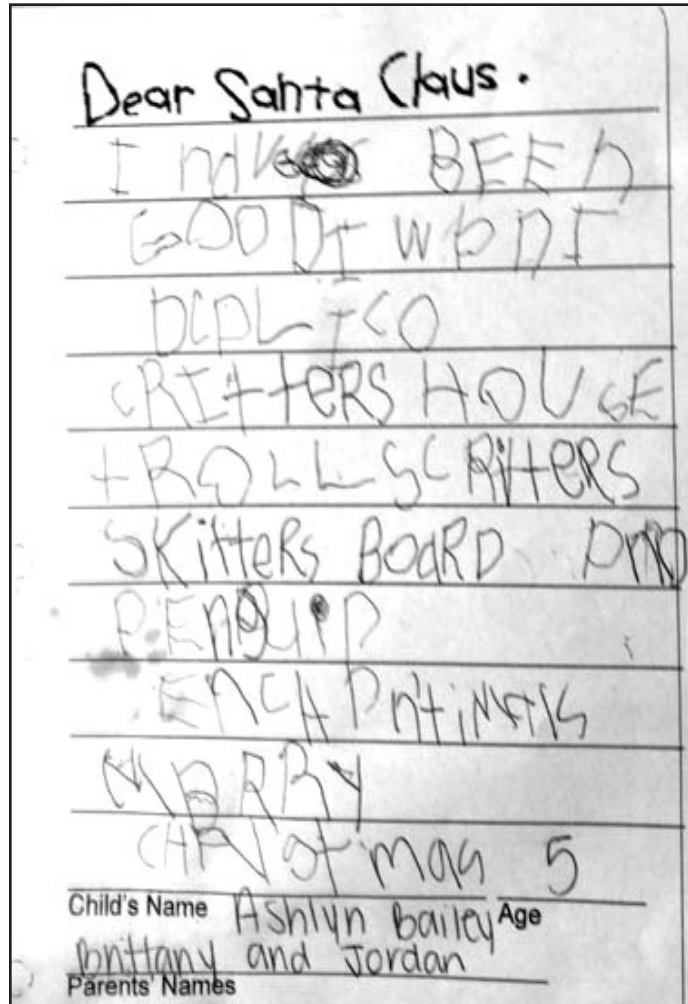 Dear Santa Claus.
I hAVE BEEN
GOOD I WANT
CALICO
CRIttERS HOUSE
tROLLS CRittERS
SKitteRS BOARD AND
PENguiN
ENCHANtiMALS
MARRY
CHRistmas 5
Child's Name Ashlyn Bailey Age
Brittany and Jordan
Parents' Names